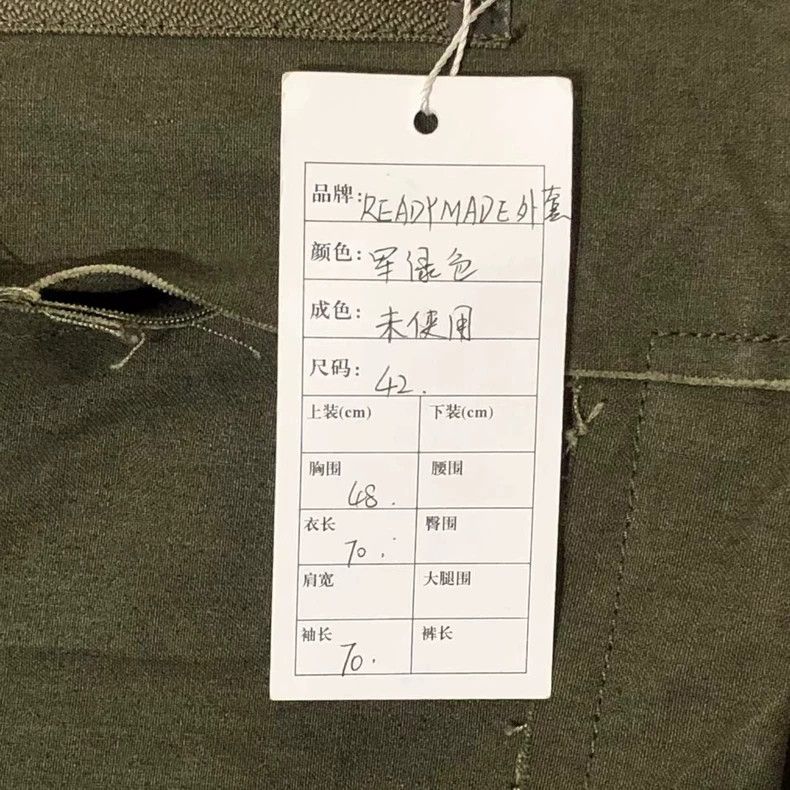 品牌: READYMADE外套
颜色: 军绿色
成色: 未使用
尺码: 42.
上装(cm) 下装(cm)
胸围 48. 腰围
衣长 70. 臀围
肩宽 大腿围
袖长 70. 裤长